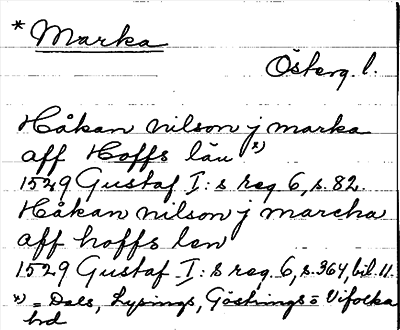 * Marka
Österg. l.
Håkan nilson j marka
aff Hoffs län *)
1529 Gustaf I:s reg 6, s. 82.
Håkan nilson j marcha
aff hoffs len
1529 Gustaf I:s reg. 6, s. 364, bil. 11.
*) = Dals, Lysings, Göstrings o Vifolka
hd